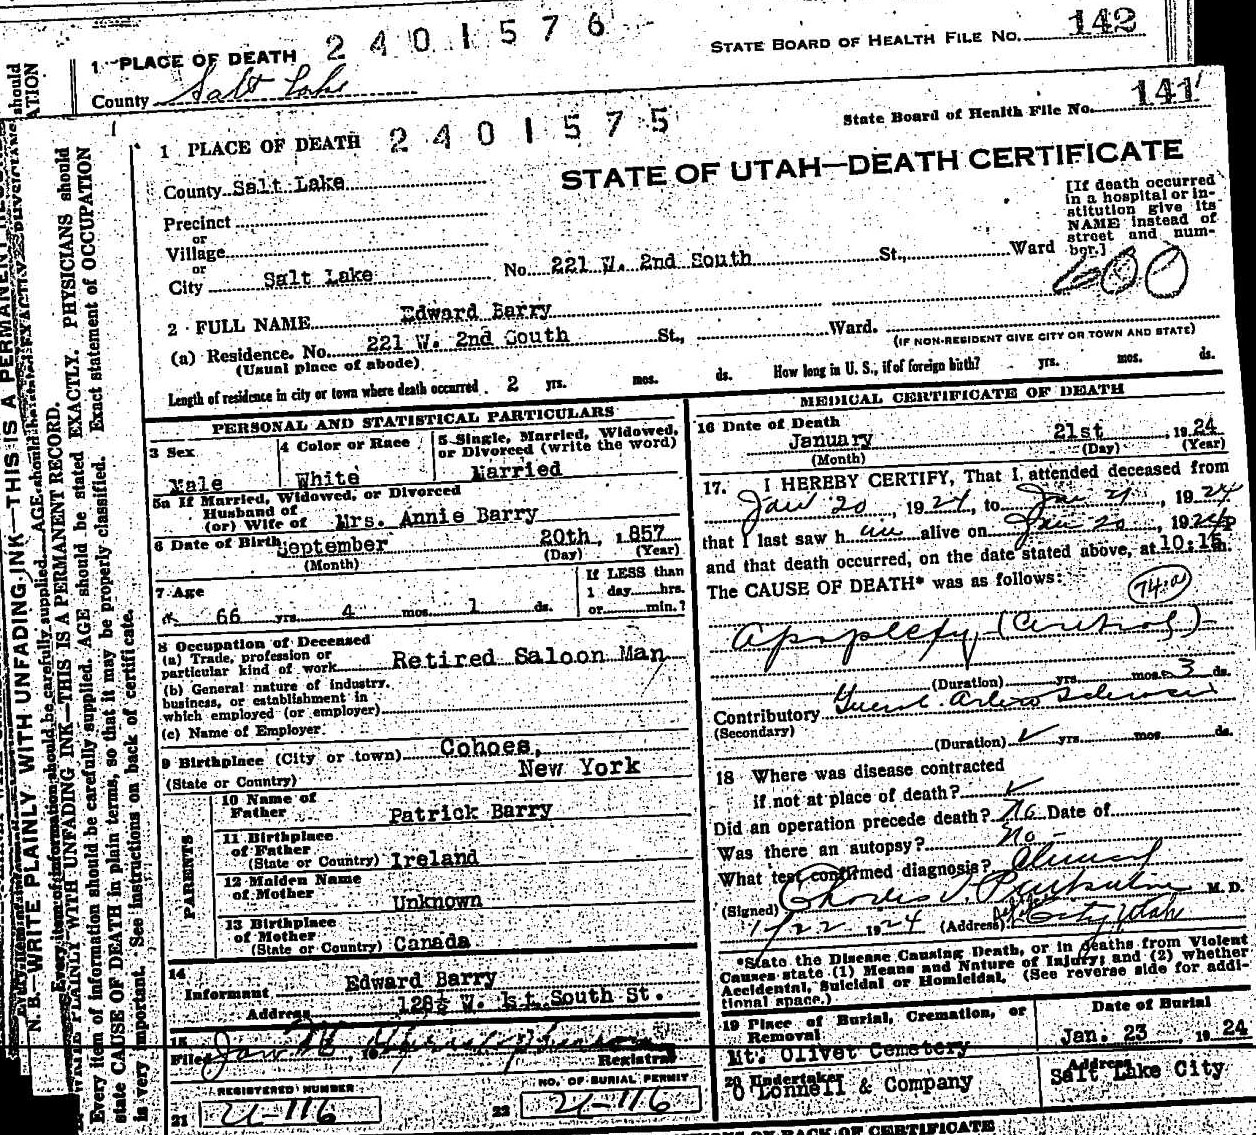 1 PLACE OF DEATH 2401576
STATE BOARD OF HEALTH FILE NO. 142
County Salt Lake
State Board of Health File No. 141
1 PLACE OF DEATH 2401575
STATE OF UTAH—DEATH CERTIFICATE
County Salt Lake
[If death occurred
in a hospital or in-
stitution give its
NAME instead of
street and num-
ber.]
Precinct
or
Village
or
City Salt Lake No. 221 W. 2nd South St., Ward
600
2 FULL NAME Edward Barry
(a) Residence. No. 221 W. 2nd South St., Ward.
(Usual place of abode)
(IF NON-RESIDENT GIVE CITY OR TOWN AND STATE)
Length of residence in city or town where death occurred 2 yrs. mos. ds. How long in U. S., if of foreign birth? yrs. mos. ds.
PERSONAL AND STATISTICAL PARTICULARS
3 Sex
Male
4 Color or Race
White
5 Single, Married, Widowed,
or Divorced (write the word)
Married
5a If Married, Widowed, or Divorced
Husband of
(or) Wife of Mrs. Annie Barry
6 Date of Birth September 20th, 1857
(Month) (Day) (Year)
7 Age
66 yrs. 4 mos. 1 ds.
If LESS than
1 day hrs.
or min.?
8 Occupation of Deceased
(a) Trade, profession or
particular kind of work Retired Saloon Man
(b) General nature of industry,
business, or establishment in
which employed (or employer)
(c) Name of Employer
9 Birthplace (City or town) Cohoes,
(State or Country) New York
PARENTS
10 Name of
Father Patrick Barry
11 Birthplace
of Father
(State or Country) Ireland
12 Maiden Name
of Mother Unknown
13 Birthplace
of Mother
(State or Country) Canada
14
Informant Edward Barry
Address 128½ W. 1st South St.
15
Filed Jan. 19 Registrar
REGISTERED NUMBER
21 U-116
NO. OF BURIAL PERMIT
22 U-116
MEDICAL CERTIFICATE OF DEATH
16 Date of Death
January 21st, 1924
(Month) (Day) (Year)
17. I HEREBY CERTIFY, That I attended deceased from
Jan 20, 1924, to Jan 21, 1924
that I last saw h im alive on Jan 20, 1924
and that death occurred, on the date stated above, at 10:15 P m.
The CAUSE OF DEATH* was as follows:
74.a
Apoplexy (Cerebral)
(Duration) yrs. mos. 3 ds.
Contributory Arterio Sclerosis
(Secondary)
(Duration) yrs. mos. ds.
18 Where was disease contracted
if not at place of death?
Did an operation precede death? No Date of
Was there an autopsy? No
What test confirmed diagnosis? Clinical
(Signed) Charles M. D.
1/22 1924 (Address) City, Utah
*State the Disease Causing Death, or in deaths from Violent
Causes state (1) Means and Nature of Injury; and (2) whether
Accidental, Suicidal or Homicidal. (See reverse side for addi-
tional space.)
19 Place of Burial, Cremation, or
Removal
Mt. Olivet Cemetery
Date of Burial
Jan. 23, 1924
20 Undertaker
O'Donnell & Company
Address
Salt Lake City
N. B.—WRITE PLAINLY WITH UNFADING INK—THIS IS A PERMANENT RECORD.
Every item of information should be carefully supplied. AGE should be stated EXACTLY. PHYSICIANS should
state CAUSE OF DEATH in plain terms, so that it may be properly classified. Exact statement of OCCUPATION
is very important. See instructions on back of certificate.